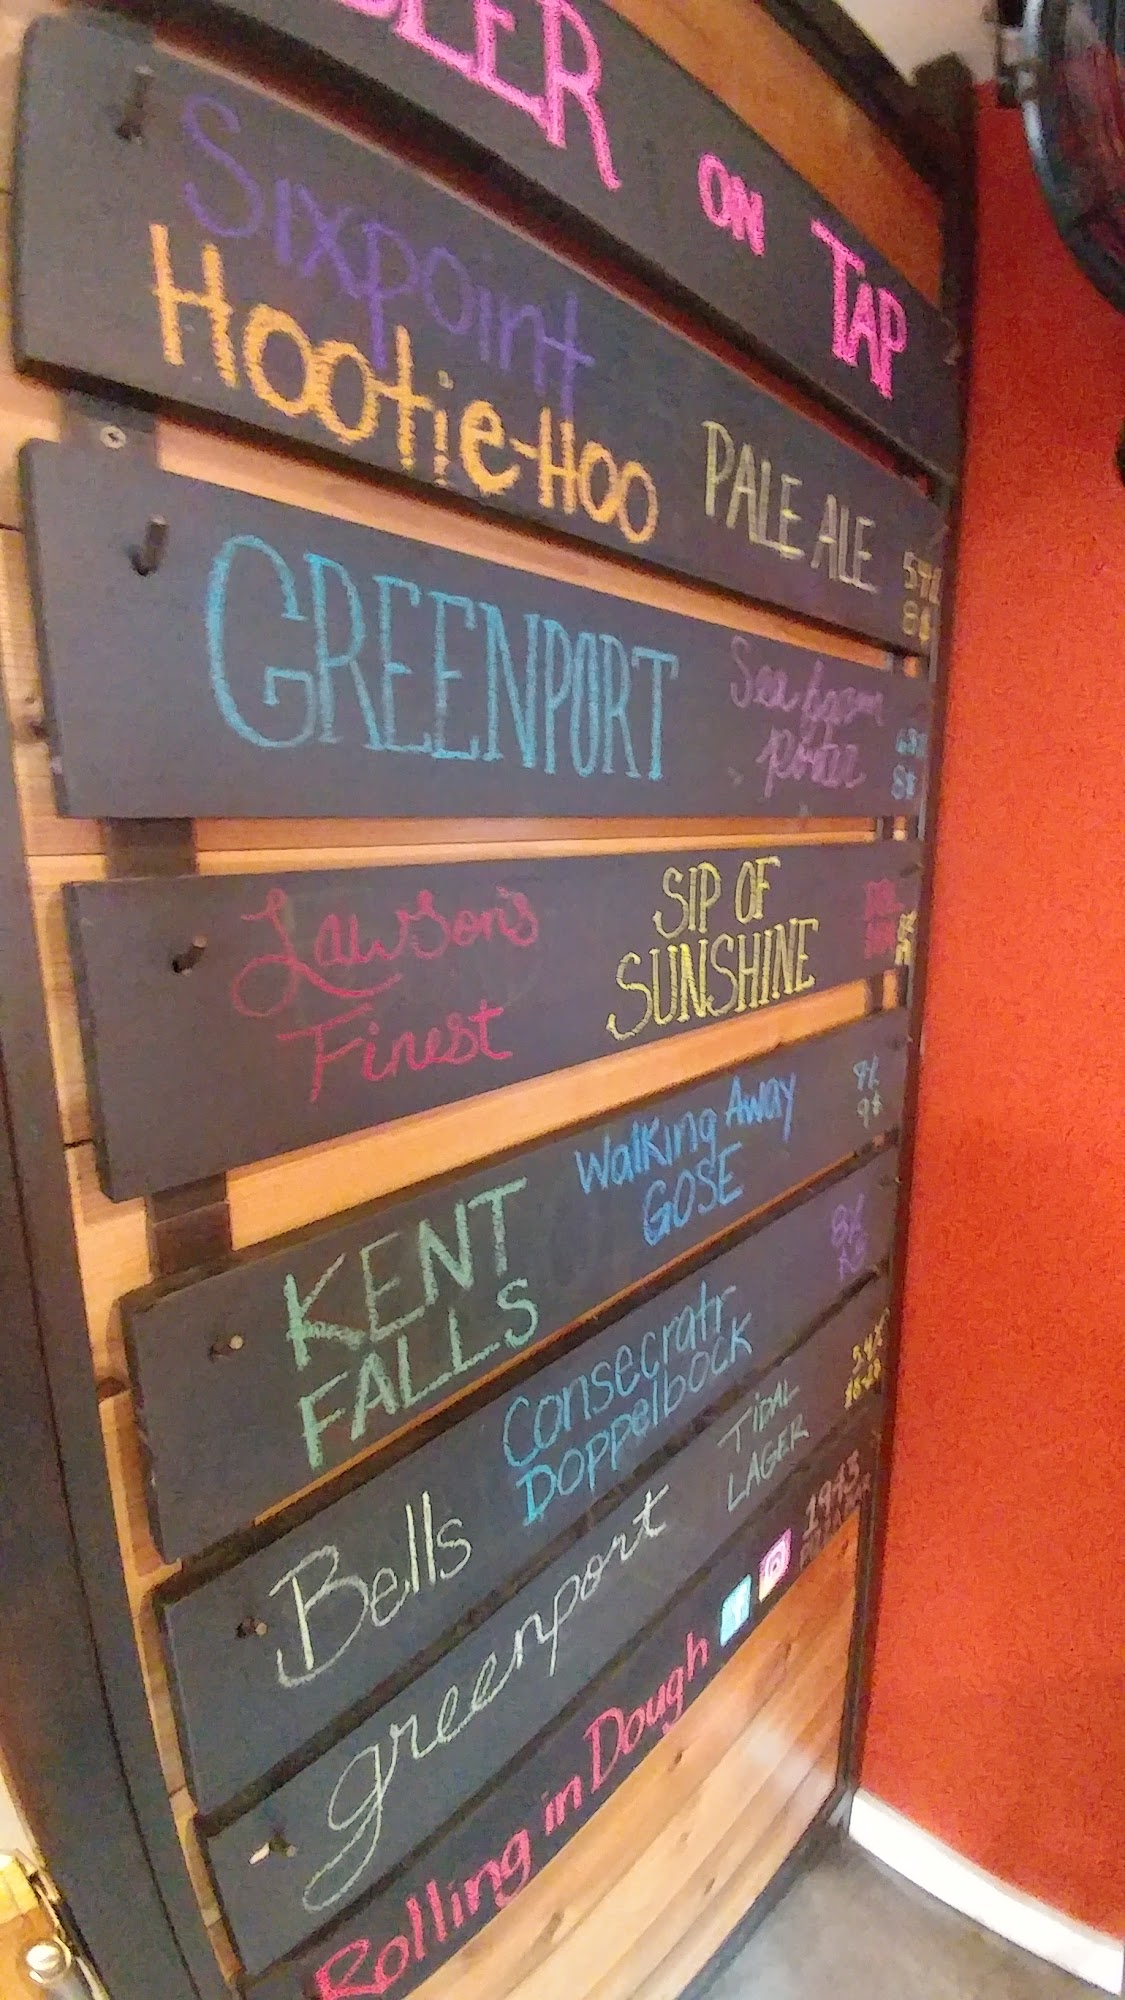 ON TAP
Sixpoint
Hootie-Hoo
PALE ALE
8$
GREENPORT
Sea Foam
Porter
8$
Lawson's
Finest
SIP OF
SUNSHINE
KENT
FALLS
Walking Away
GOSE
9$
Bells
Consecratr
Doppelbock
8%
greenport
TIDAL
LAGER
Rolling in Dough
1943